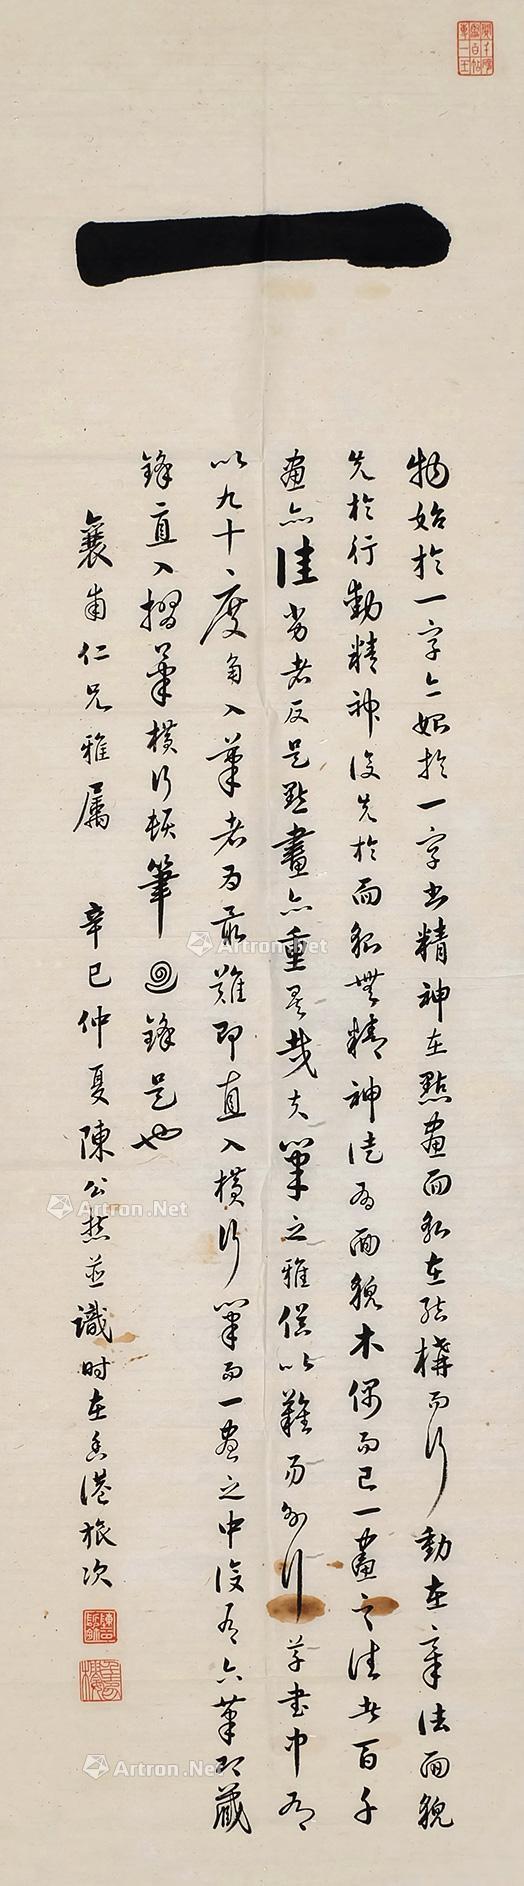 一
物始於一字亦始於一字書精神在點畫面貌在結構而行動在章法面貌
先於行動精神復先於面貌無精神徒為面貌木偶而已一畫之佳者百千
畫亦佳劣者反是點畫亦重是哉夫筆之雅俗以難易別行草書中有
以九十度角入筆者為最難即直入橫行筆而一畫之中復有六筆即藏
鋒直入摺筆橫行頓筆回鋒是也
襄甫仁兄雅屬 辛巳仲夏陳公哲並識時在香港旅次
Artron.Net
Artron.Net
Artron.Net
Artron.Net